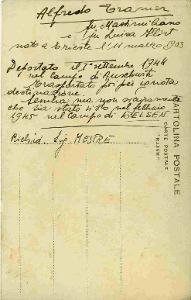 Alfredo
fu Massimiliano
e fu Luisa
nato a Trieste l'11 marzo 1903
Deportato il 1° settembre 1944
nel campo di Auschwitz
Trasportato poi per ignota
destinazione.
Sembra ma non
che sia stato nel febbraio
1945 nel campo di BELSEN
Richied. Sig. MESTRE
CARTOLINA POSTALE
CARTE POSTALE